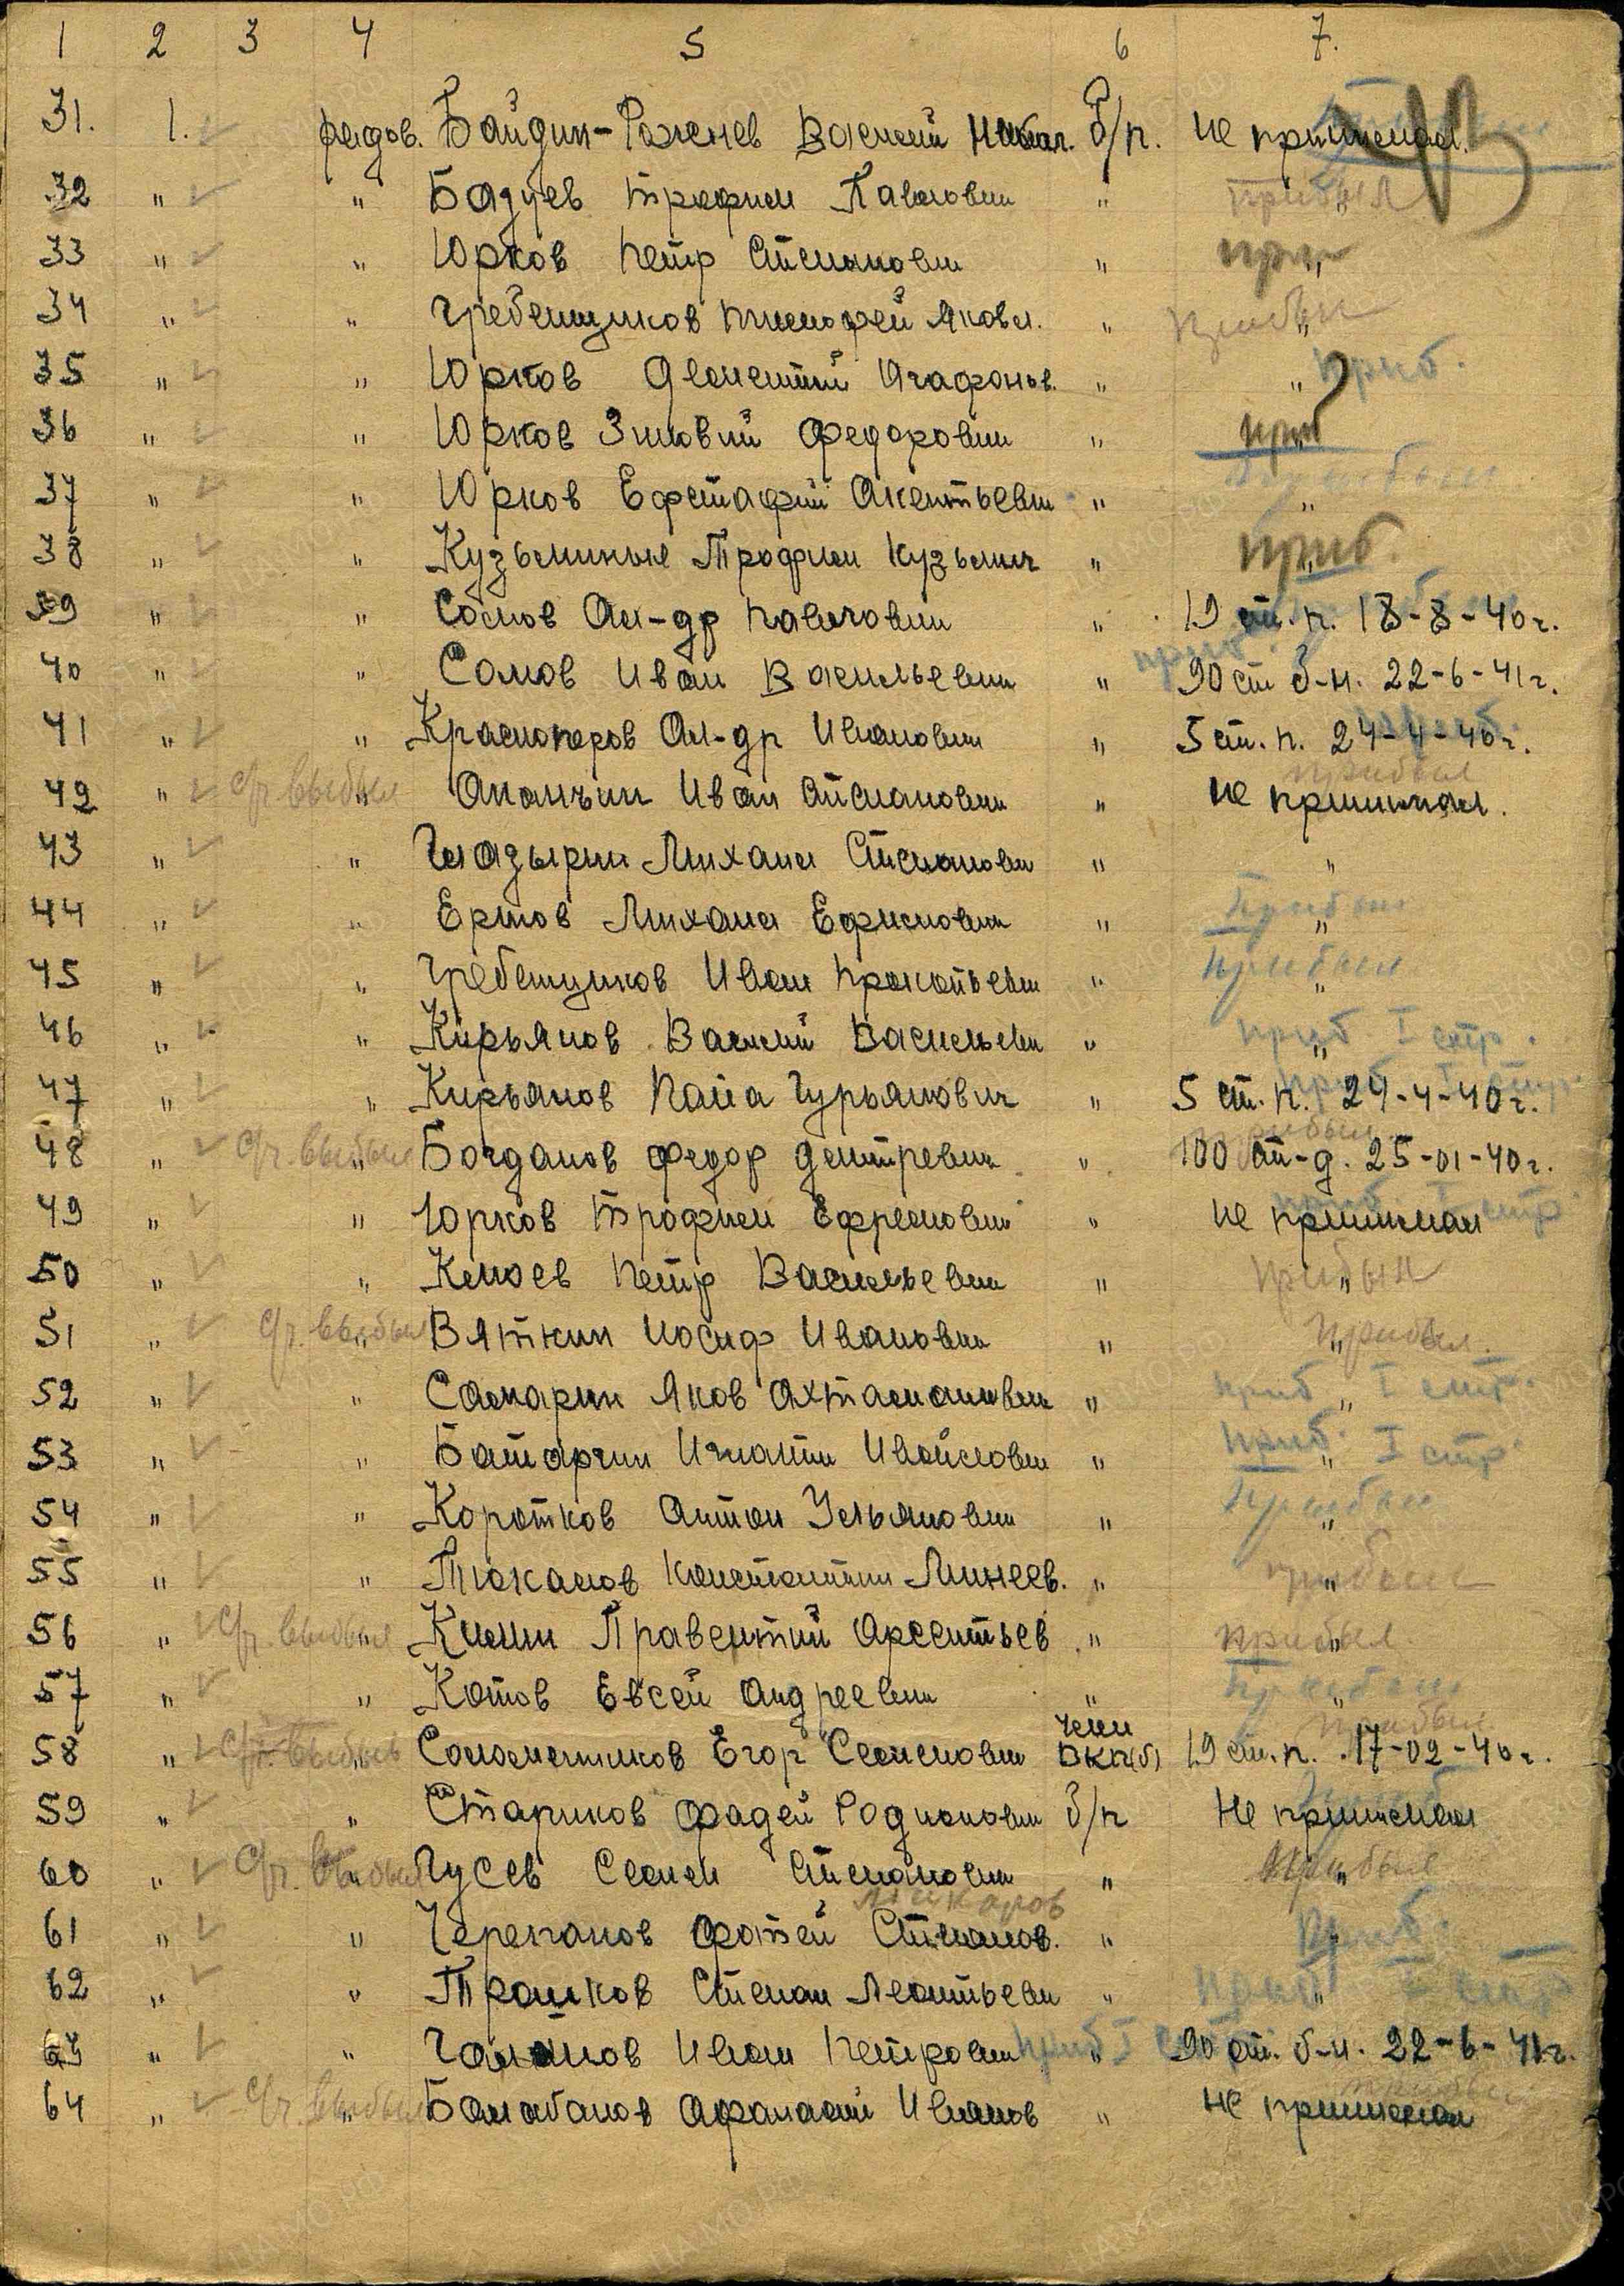 1 2 3 4 5 6 7.
31. 1. рядов. Байдин- Василий Никол. б/п. не принимал.
32 " " Бадуев Трофим Павлович " " прибыл
33 " " Юрков Петр Степанович " "
34 " " Гребенщиков Тимофей Яковл. " "
35 " " Юрков Дементий Агафонов. " " приб.
36 " " Юрков Зиновий Федорович "
37 " " Юрков Ефстафий Акентьевич " " прибыл
38 " " Кузьминых Трофим Кузьмич " " приб.
39 " " Сомов Ал-др Павлович " 19 ст. п. 18-8-40г.
40 " " Сомов Иван Васильевич " приб 90 ст б-н. 22-6-41г.
41 " " Красноперов Ал-др Иванович " 5 ст. п. 24-4-40г.
42 " с/г. выбыл " Ананьин Иван Степанович " не принимал. прибыл
43 " " Гладырин Михаил Степанович " "
44 " " Ершов Михаил Ефимович " " прибыл
45 " " Гребенщиков Иван Прокопьевич " " прибыл
46 " " Кирьянов Василий Васильевич " " приб I стр.
47 " " Кирьянов Гурьянович " 5 ст. п. 24-4-40г.
48 " с/г. выбыл " Богданов Федор Дмитревич " 100 ат-д. 25-01-40г. прибыл
49 " " Юрков Трофим Ефремович " не принимал приб I стр
50 " " Петр Васильевич " " прибыл
51 " с/г. выбыл " Вяткин Иосиф Иванович " " прибыл.
52 " " Самарин Яков " " приб I стр.
53 " " Батаргин Игнатий " " приб. I стр
54 " " Коротков Антон Ульянович " " прибыл
55 " " Тюканов Константин Минеев. " " прибыл
56 " с/г. выбыл " Правентий Арсентьев " " прибыл.
57 " " Котов Евсей Андреевич " " прибыл
58 " с/г. выбыл " Егор Семенович член ВКП(б) 19 ст. п. 17-02-40г. прибыл
59 " " Стариков Фадей Родионович б/п Не принимал
60 " с/г. выбыл " Гусев Семен Степанович " " прибыл
61 " " Черепанов Фотей Степанов. " " приб.
62 " " Трошков Степан Леонтьевич " " приб I стр
63 " " Иван Петрович приб I " 90 ст. б-н. 22-6-41г.
64 " с/г. выбыл " Балабанов Афанасий Иванов " не принимал прибыл